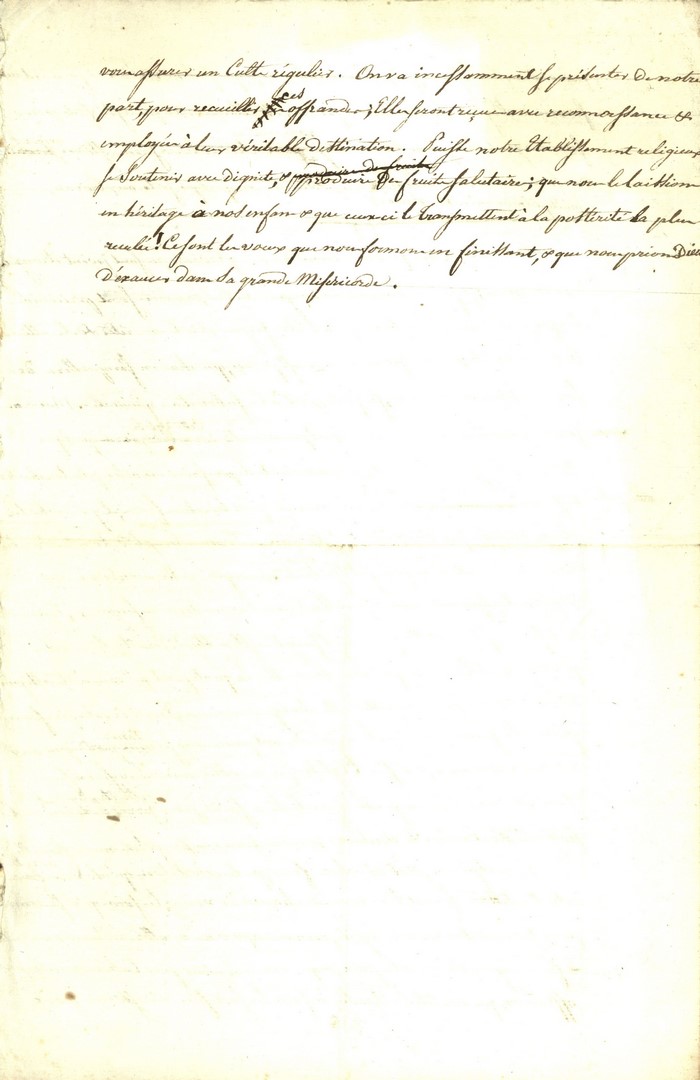 vous assurer un Culte régulier. On va incessamment se présenter de notre
part, pour recueillir ces offrandes; Elles seront reçues avec reconnoissance &
employées à leur véritable destination. Puisse notre Etablissement religieux
se soutenir avec dignité, & produire des fruits produire Des fruits salutaires; que nous le laissions
en héritage à nos enfans & que ceux-ci le transmettent à la postérité la plus
reculée! Ce sont les vœux que nous formons en finissant, & que nous prions Dieu
d'éxaucer dans sa grande Miséricorde.